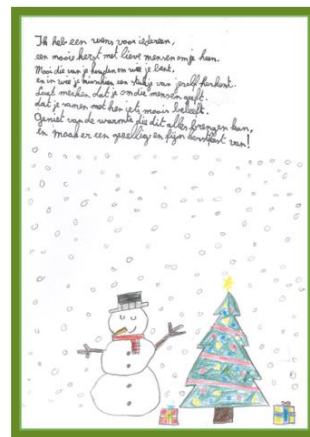 Ik heb een wens voor iedereen,
een mooie kerst met lieve mensen om je heen.
Mooi die van je houden om wie je bent,
en in wie je misschien een stukje van jezelf herkent.
Laat merken dat je om die mensen geeft,
dat je samen met hen iets moois beleeft.
Geniet van de warmte die dit alles brengen kan,
en maak er een gezellig en fijn kerstfeest van!